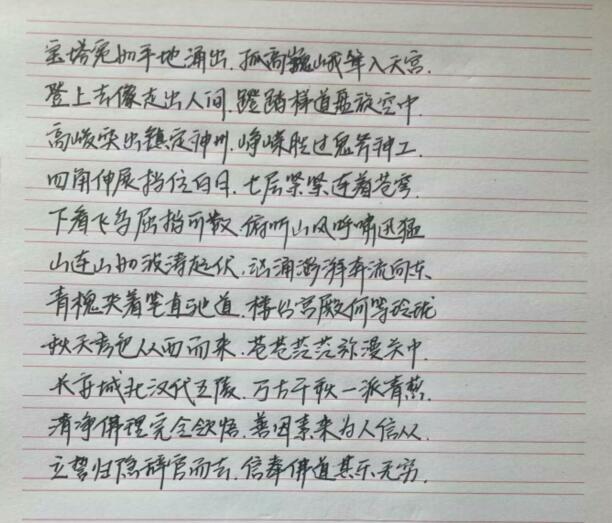 宝塔宛如平地涌出.孤高巍峨耸入天宫.
登上去像走出人间.蹬踏梯道盘旋空中.
高峻突出镇定神州.峥嵘胜过鬼斧神工.
四角伸展挡住白日.七层紧紧连着苍穹.
下看飞鸟屈指可数.俯听山风呼啸迅猛
山连山如波涛起伏.汹涌澎湃奔流向东.
青槐夹着笔直驰道.楼台宫殿何等玲珑
秋天秀色从西而来.苍苍茫茫弥漫关中.
长安城北汉代五陵.万古千秋一派青葱.
清净佛理完全领悟.善因素来为人信从.
立誓归隐辞官而去.信奉佛道其乐无穷.